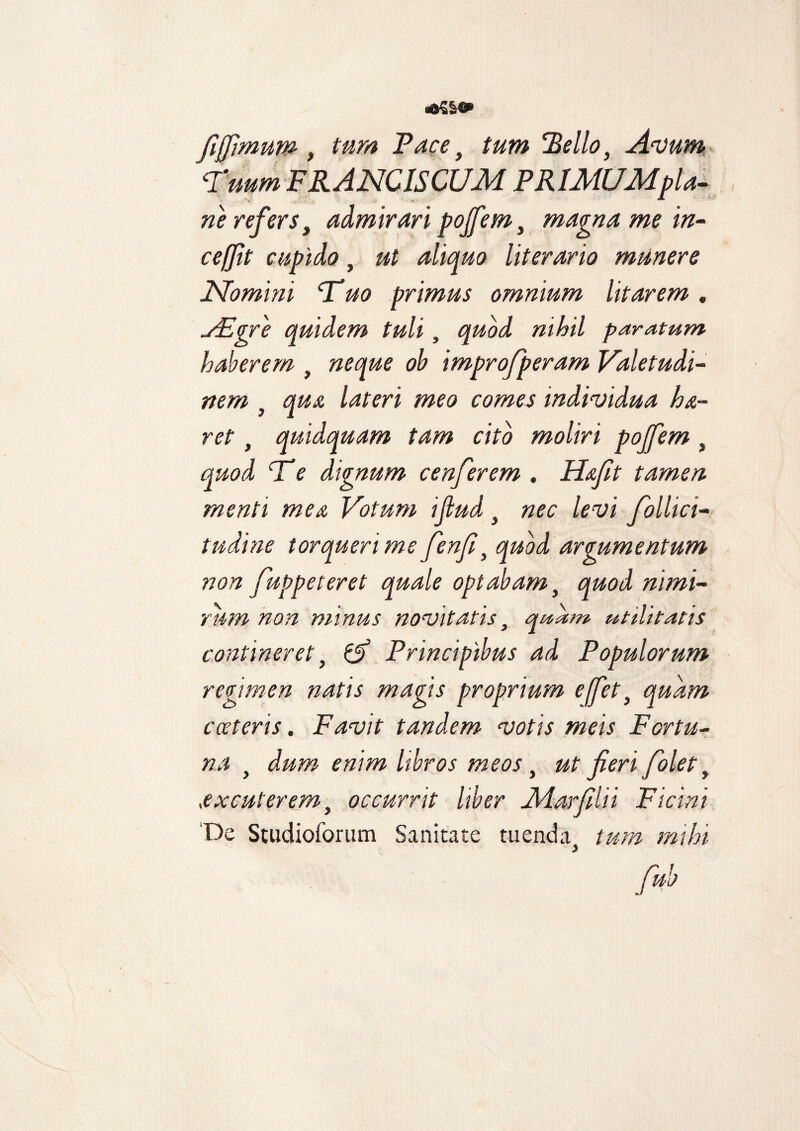 ſiſſimum , tum Pace, tum Bello, Avum
Tuum FRANCISCUM PRIMUM pla-
nè refers, admirari poſſem, magna me in-
ceſſit cupido, ut aliquo literario munere
Nomini Tuo primus omnium litarem .
Ægrè quidem tuli, quòd nihil paratum
haberem , neque ob improſperam Valetudi-
nem , quæ lateri meo comes individua hæ-
ret , quidquam tam citò moliri poſſem ,
quod Te dignum cenſerem . Hæſit tamen
menti meæ Votum iſtud, nec levi ſollici-
tudine torqueri me ſenſi, quòd argumentum
non ſuppeteret quale optabam, quod nimi-
rùm non minus novitatis, quàm utilitatis
contineret, & Principibus ad Populorum
regimen natis magis proprium eſſet, quàm
cœteris. Favit tandem votis meis Fortu-
na , dum enim libros meos, ut fieri ſolet,
excuterem, occurrit liber Marſilii Ficini
De Studioſorum Sanitate tuenda, tum mihi
ſub